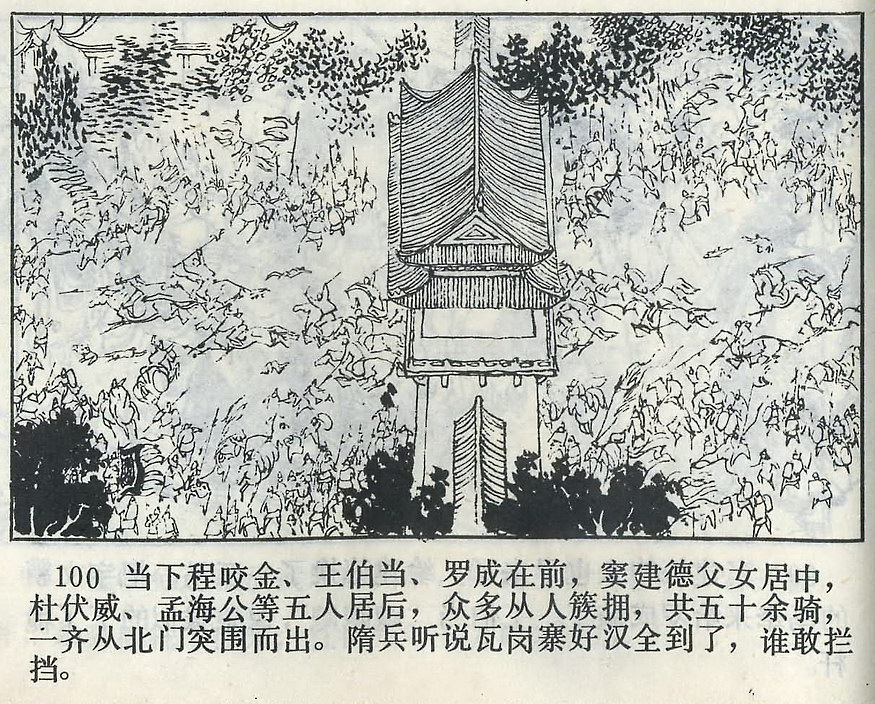 100 当下程咬金、王伯当、罗成在前，窦建德父女居中，
杜伏威、孟海公等五人居后，众多从人簇拥，共五十余骑，
一齐从北门突围而出。隋兵听说瓦岗寨好汉全到了，谁敢拦
挡。